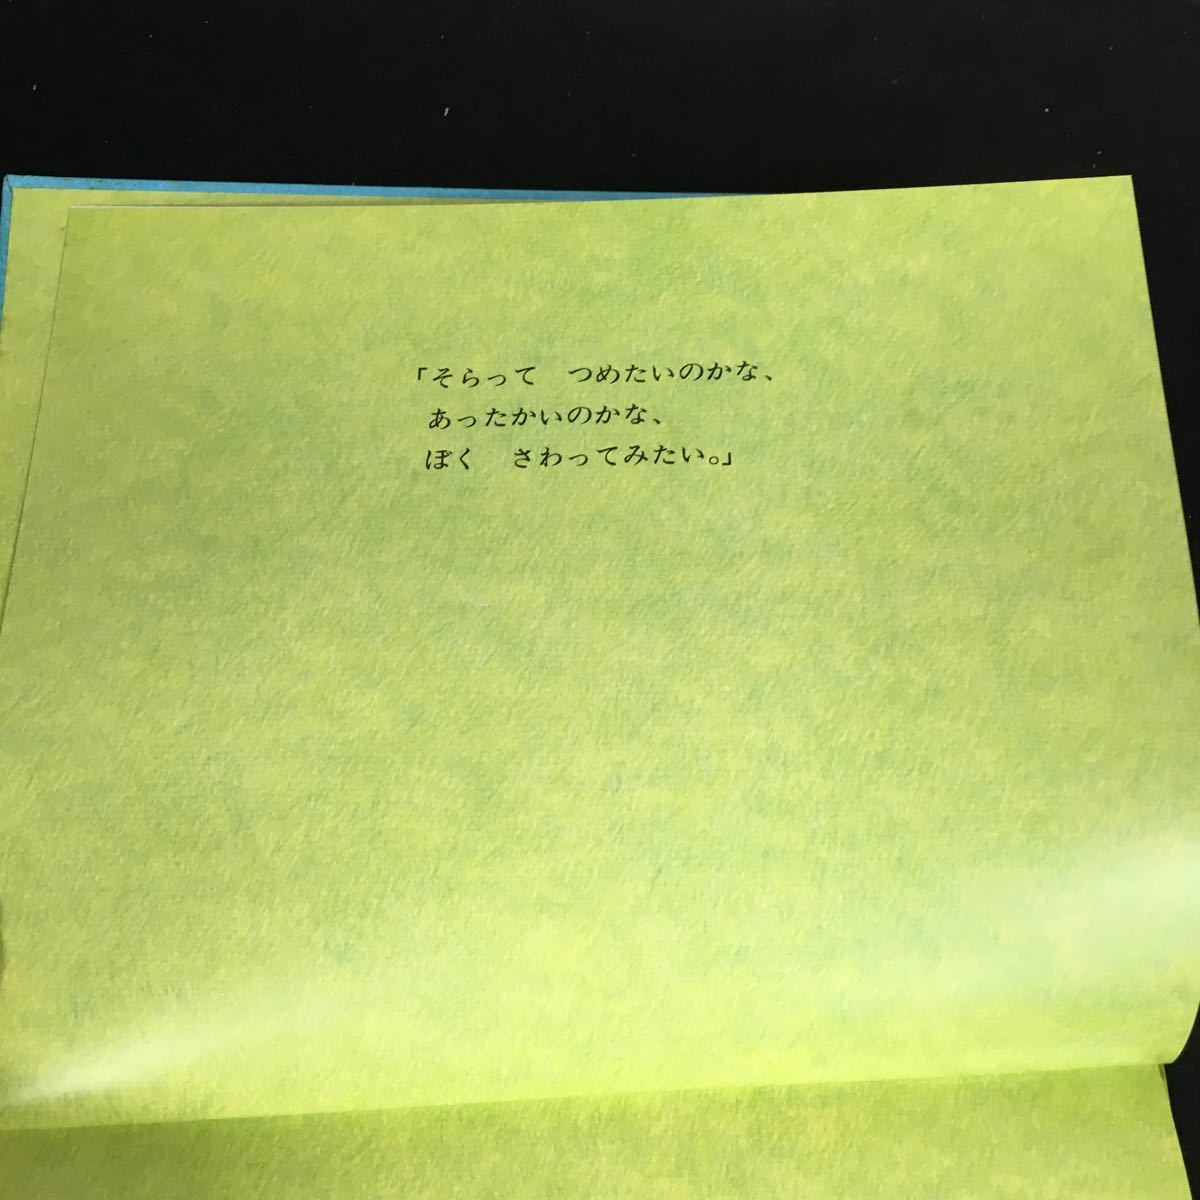 「そらって　つめたいのかな、
あったかいのかな、
ぼく　さわってみたい。」